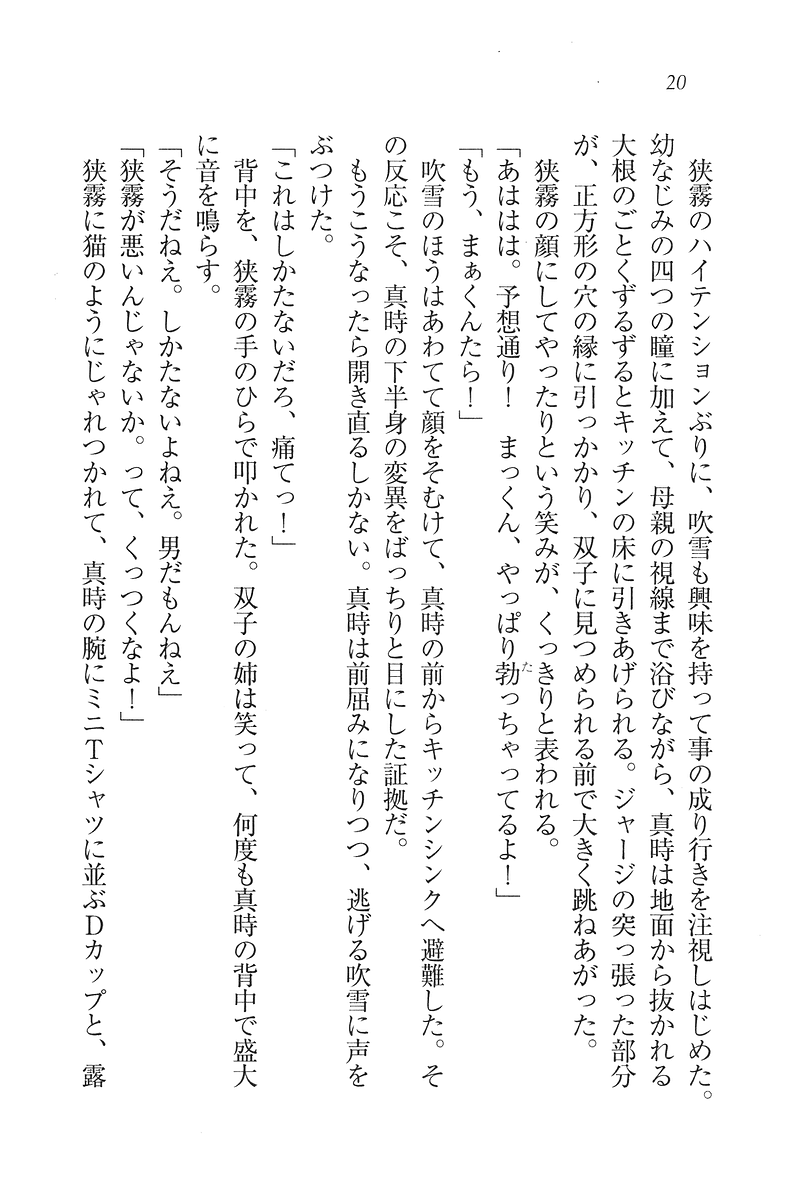 20
狭霧のハイテンションぶりに、吹雪も興味を持って事の成り行きを注視しはじめた。
幼なじみの四つの瞳に加えて、母親の視線まで浴びながら、真時は地面から抜かれる
大根のごとくずるずるとキッチンの床に引きあげられる。ジャージの突っ張った部分
が、正方形の穴の縁に引っかかり、双子に見つめられる前で大きく跳ねあがった。
狭霧の顔にしてやったりという笑みが、くっきりと表われる。
「あははは。予想通り！　まっくん、やっぱり勃っちゃってるよ！」
た
「もう、まぁくんたら！」
吹雪のほうはあわてて顔をそむけて、真時の前からキッチンシンクへ避難した。そ
の反応こそ、真時の下半身の変異をばっちりと目にした証拠だ。
もうこうなったら開き直るしかない。真時は前屈みになりつつ、逃げる吹雪に声を
ぶつけた。
「これはしかたないだろ、痛てっ！」
背中を、狭霧の手のひらで叩かれた。双子の姉は笑って、何度も真時の背中で盛大
に音を鳴らす。
「そうだねえ。しかたないよねえ。男だもんねえ」
「狭霧が悪いんじゃないか。って、くっつくなよ！」
狭霧に猫のようにじゃれつかれて、真時の腕にミニTシャツに並ぶDカップと、露